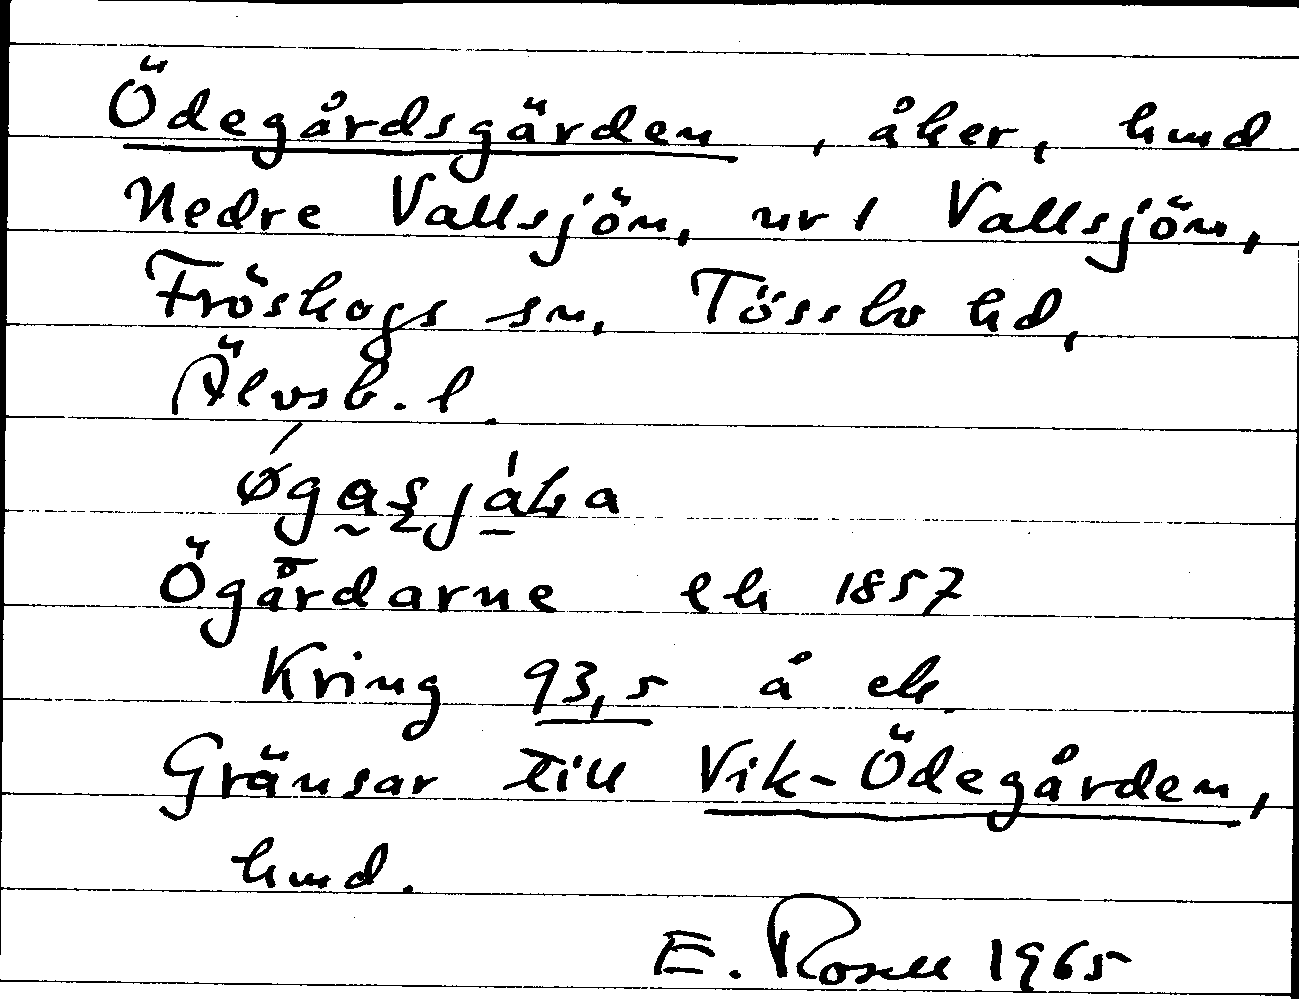 Ödegårdsgärden, åker, hmd
Nedre Vallsjön, nr 1 Vallsjön,
Fröskogs sn, Tössbo hd,
Älvsb. l.
Ögårdarne ek 1857
Kring 93,5 å ek.
Gränsar till Vik-Ödegården,
hmd.
E. Rosell 1965